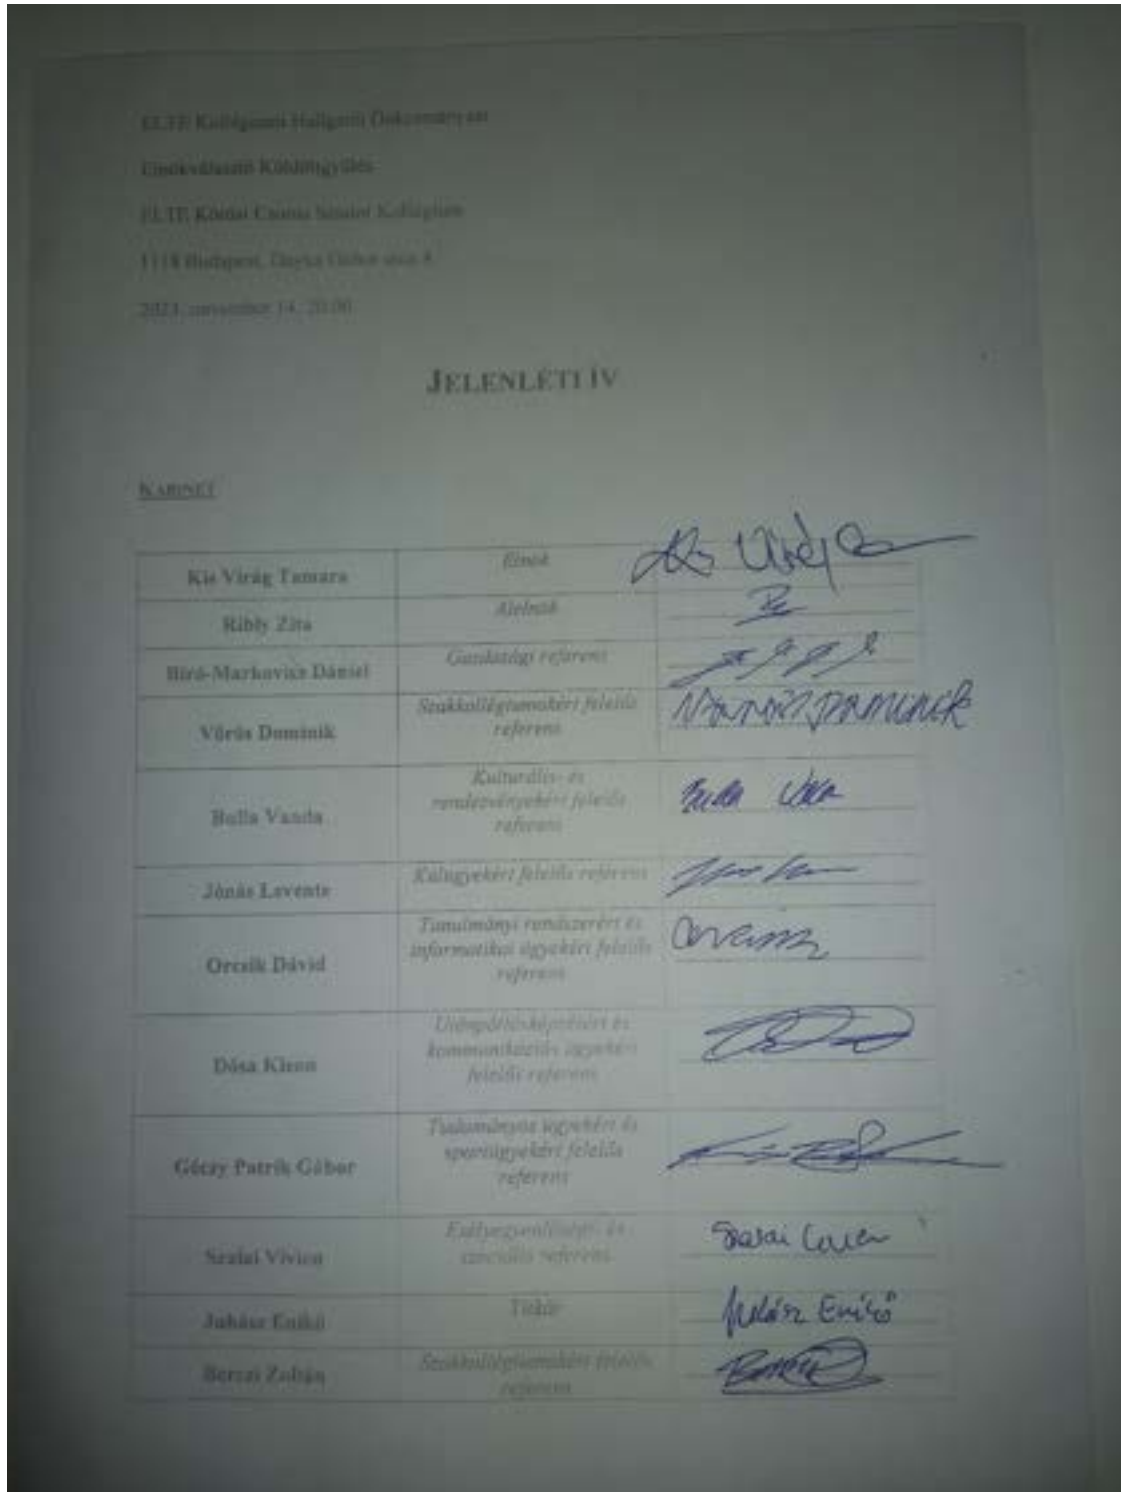 ELTE Kollégiumi Hallgatói Önkormányzat
Elnökválasztó Küldöttgyűlés
ELTE Kőrösi Csoma Sándor Kollégium
1118 Budapest, Dayka Gábor utca 4.
2023. november 14. 20:00
JELENLÉTI ÍV
KABINET
Kis Virág Tamara
Elnök
Kis Virág
Ribly Zita
Alelnök
Bíró-Markovics Dániel
Gazdasági referens
Vörös Dominik
Szakkollégiumokért felelős
referens
Vörös Dominik
Bulla Vanda
Kulturális- és
rendezvényekért felelős
referens
Jónás Levente
Külügyekért felelős referens
Orcsik Dávid
Tanulmányi rendszerért és
informatikai ügyekért felelős
referens
Dósa Kleon
Utánpótlásképzésért és
kommunikációs ügyekért
felelős referens
Góczy Patrik Gábor
Tudományos ügyekért és
sportügyekért felelős
referens
Szalai Vivien
Esélyegyenlőségi- és
szociális referens
Szalai
Juhász Enikő
Titkár
Juhász Enikő
Berczi Zoltán
Szakkollégiumokért felelős
referens